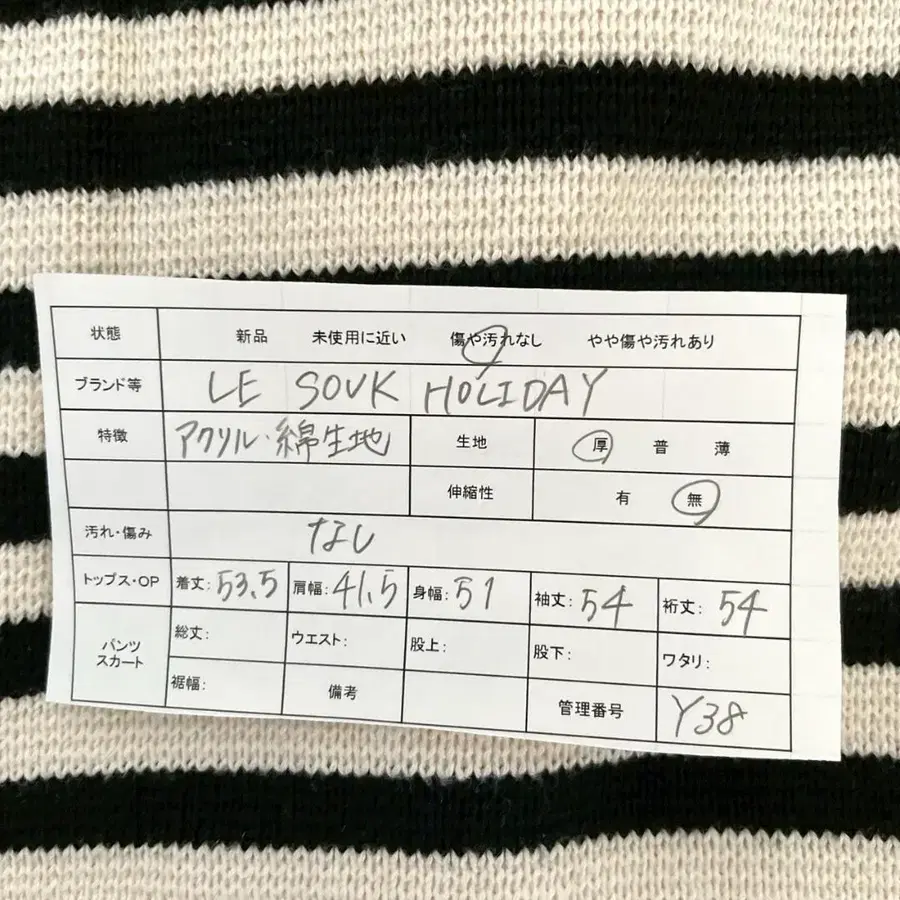 状態 新品 未使用に近い 傷や汚れなし やや傷や汚れあり
ブランド等 LE SOUK HOLIDAY
特徴 アクリル・綿生地 生地 厚 普 薄
伸縮性 有 無
汚れ・傷み なし
トップス・OP 着丈:53.5 肩幅:41.5 身幅:51 袖丈:54 裄丈:54
パンツ
スカート
総丈: ウエスト: 股上: 股下: ワタリ:
裾幅: 備考 管理番号 Y38